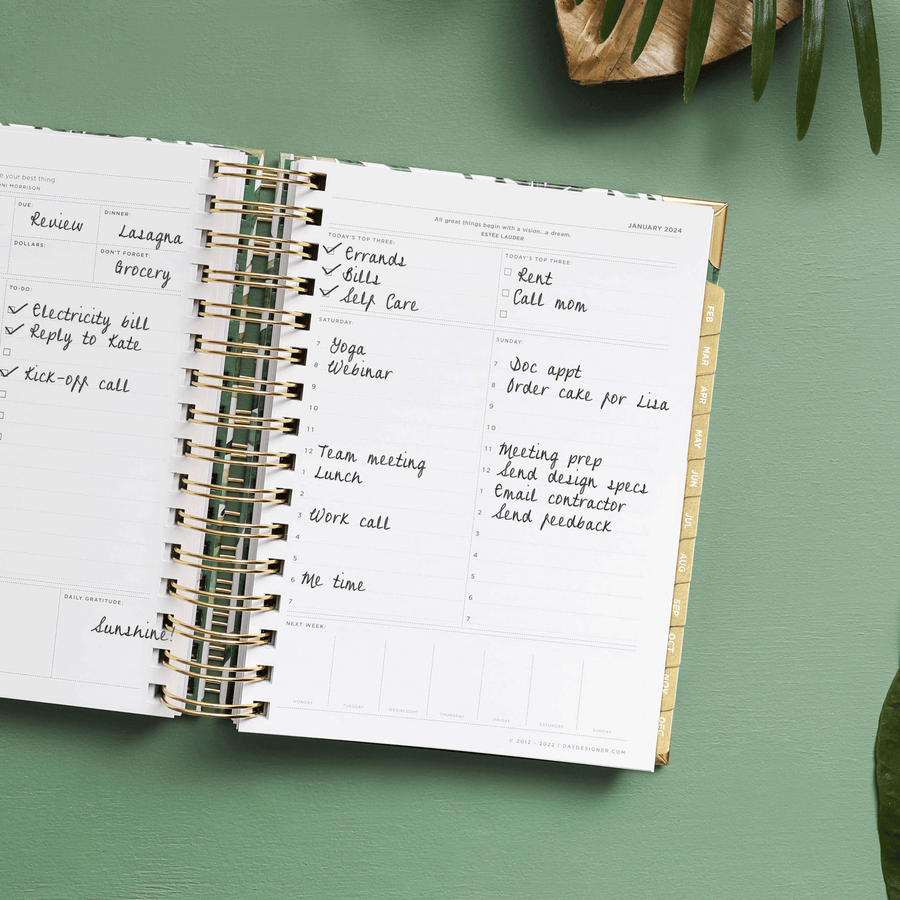 e your best thing.
NI MORRISON
DUE:
Review
DINNER:
Lasagna
DOLLARS:
DON'T FORGET:
Grocery
TO-DO:
Electricity bill
Reply to Kate
Kick-off call
DAILY GRATITUDE:
Sunshine!
All great things begin with a vision...a dream.
ESTÉE LAUDER
JANUARY 2024
TODAY'S TOP THREE:
Errands
Bills
Self Care
TODAY'S TOP THREE:
Rent
Call mom
SATURDAY:
7 Yoga
8 Webinar
9
10
11
12 Team meeting
1 Lunch
2
3 Work call
4
5
6 Me time
7
SUNDAY:
7 Doc appt
8 Order cake for Lisa
9
10
11 Meeting prep
12 Send design specs
1 Email contractor
2 Send feedback
3
4
5
6
7
NEXT WEEK:
MONDAY
TUESDAY
WEDNESDAY
THURSDAY
FRIDAY
SATURDAY
SUNDAY
© 2012 - 2022 | DAYDESIGNER.COM
FEB
MAR
APR
MAY
JUN
JUL
AUG
SEP
OCT
NOV
DEC